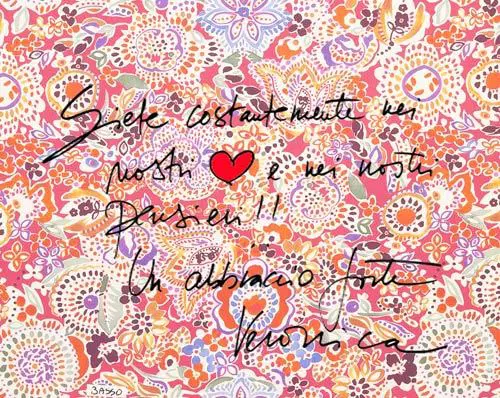 Siete costantemente nei
nostri ❤ e nei nostri
pensieri!!
Un abbraccio forte
Veronica
BASSO